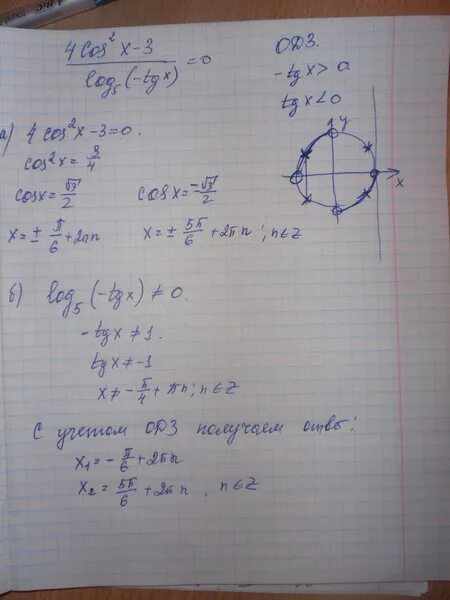 (4cos²x-3)/(log₅(-tgx)) =0
ОДЗ.
-tgx>0
tgx<0
y
x
а) 4cos²x-3=0.
cos²x= 3/4
cosx= √3/2 cosx= -√3/2
x=± π/6 +2πn x=± 5π/6 +2πn; n∈Z
б) log₅(-tgx)≠0.
-tgx≠1.
tgx≠-1
x≠-π/4 + πn; n∈Z
С учетом ОДЗ получаем ответ:
x₁=-π/6 +2πn
x₂= 5π/6 +2πn, n∈Z